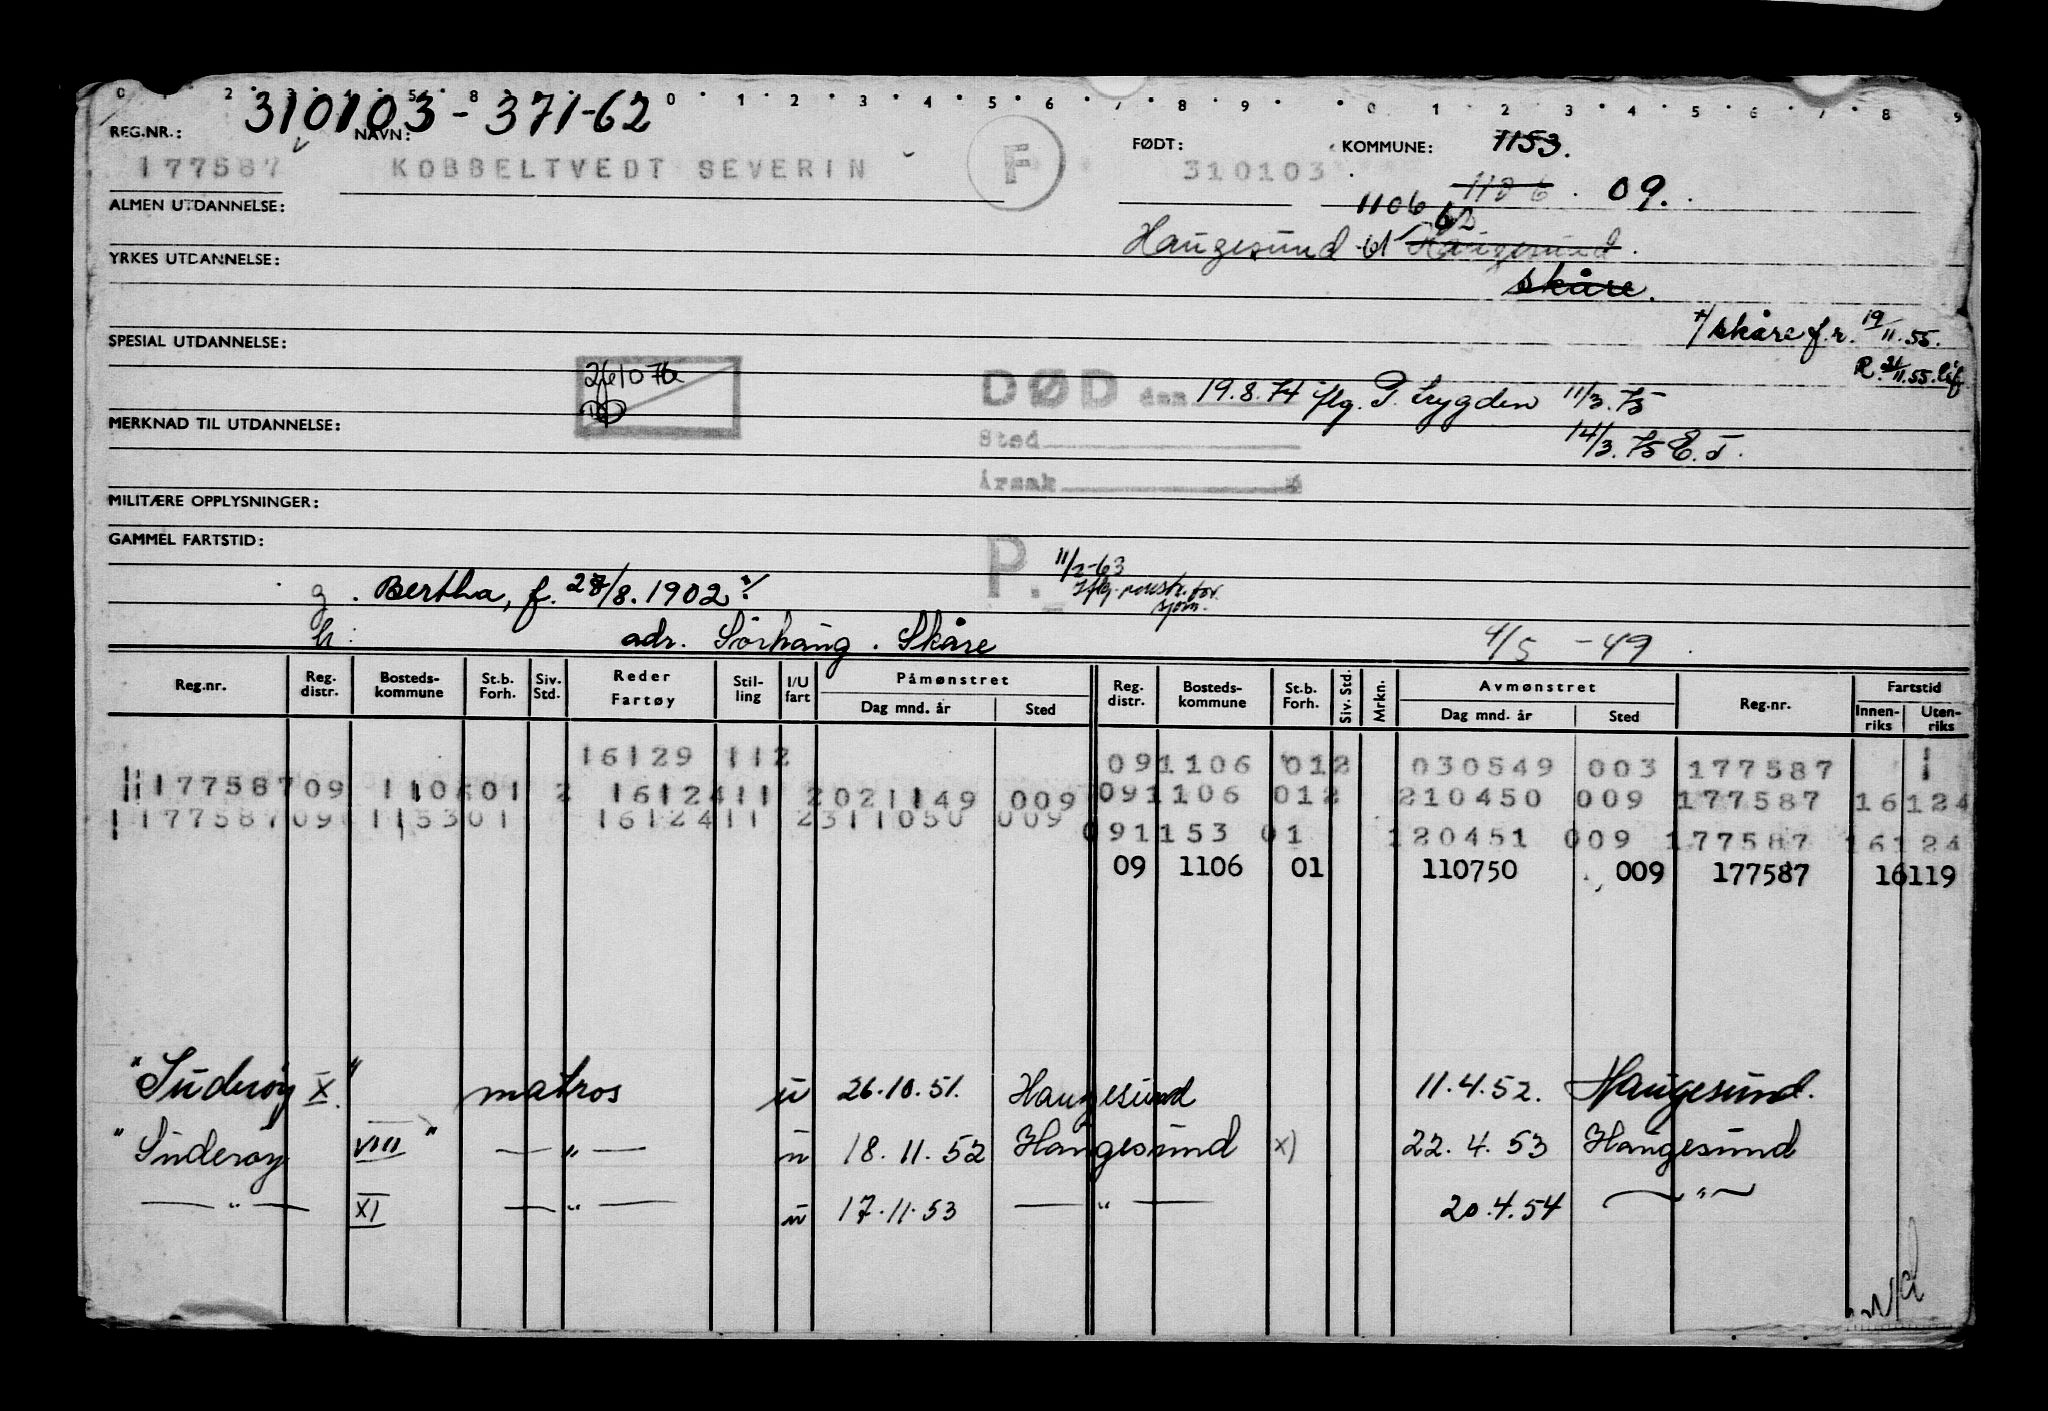 310103-371-62
REG.NR.: NAVN: FØDT: KOMMUNE: 1153.
177587 KOBBELTVEDT SEVERIN F 310103
1106 09.
ALMEN UTDANNELSE:
Haugesund 62 Haugesund.
YRKES UTDANNELSE:
Skåre.
x/ Skåre f.r. 19/11.55.
SPESIAL UTDANNELSE:
DØD den 19.8.74 iflg. P. trygden 11/3.75
MERKNAD TIL UTDANNELSE:
Sted 14/3.75 E.T.
Årsak
MILITÆRE OPPLYSNINGER:
GAMMEL FARTSTID:
P. 11/2-63
g. Bertha, f. 28/8.1902
adr. Sørhaug. Skåre 4/5 -49
Reg.nr. Reg. distr. Bosteds-kommune St.b. Forh. Siv. Std. Reder Fartøy Stil-ling I/U fart Påmønstret Dag mnd. år Sted Reg. distr. Bosteds-kommune St.b. Forh. Siv. Std. Mrkn. Avmønstret Dag mnd. år Sted Reg.nr. Fartstid Innen-riks Uten-riks
16129 112 091106 012 030549 003 177587 1
17758709 110601 2 1612411 2021149 009 091106 012 210450 009 177587 16124
17758709 115301 1612411 2311050 009 091153 01 120451 009 177587 16124
09 1106 01 110750 009 177587 16119
"Suderøy X" matros u 26.10.51. Haugesund 11.4.52. Haugesund.
"Suderøy VIII" — " — u 18.11.52 Haugesund x) 22.4.53 Haugesund
— " — XI — " — u 17.11.53 — " — 20.4.54 — " —